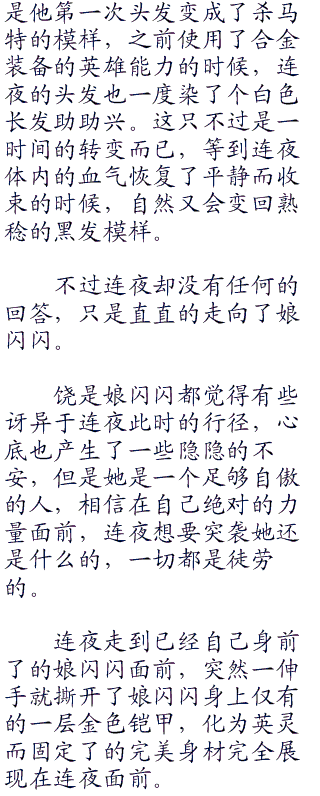 是他第一次头发变成了杀马
特的模样，之前使用了合金
装备的英雄能力的时候，连
夜的头发也一度染了个白色
长发助助兴。这只不过是一
时间的转变而已，等到连夜
体内的血气恢复了平静而收
束的时候，自然又会变回熟
稔的黑发模样。
不过连夜却没有任何的
回答，只是直直的走向了娘
闪闪。
饶是娘闪闪都觉得有些
讶异于连夜此时的行径，心
底也产生了一些隐隐的不
安，但是她是一个足够自傲
的人，相信在自己绝对的力
量面前，连夜想要突袭她还
是什么的，一切都是徒劳
的。
连夜走到已经自己身前
了的娘闪闪面前，突然一伸
手就撕开了娘闪闪身上仅有
的一层金色铠甲，化为英灵
而固定了的完美身材完全展
现在连夜面前。